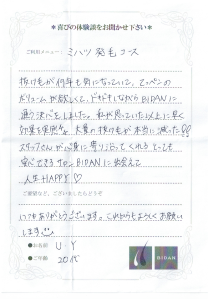 ＊喜びの体験談をお聞かせ下さい＊
ご利用メニュー：ミハツ発毛コース
抜け毛が何年も気になっていて、てっぺんの
ボリュームが欲しくて、ドキドキしながらBIDANに
通う決心をしました。私が思っていた以上に早く
効果を実感♪。大量の抜け毛が本当に減った!!
スタッフさんが心身に寄り沿ってくれる とっても
安心できるサロン。BIDANに出会えて
人生HAPPY♡
ご要望など、ございましたらどうぞ
いつもありがとうございます。これからもよろしくお願い
します
●お名前 U Y
●ご年齢 20代
BIDAN